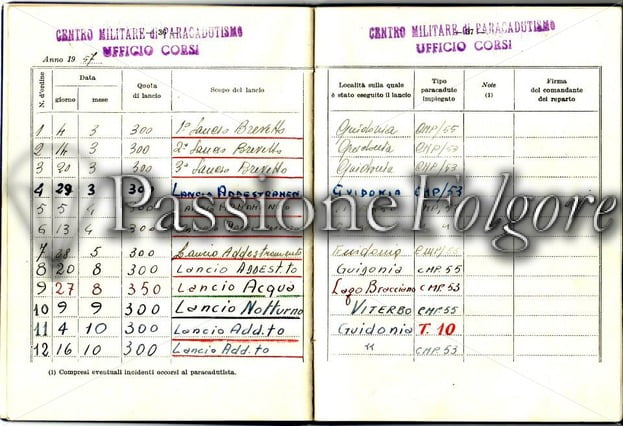 CENTRO MILITARE di PARACADUTISMO
UFFICIO CORSI
Anno 1957
N. d'ordine Data giorno mese Quota di lancio Scopo del lancio
1 4 3 300 1º Lancio Brevetto
2 14 3 300 2º Lancio Brevetto
3 20 3 300 3º Lancio Brevetto
4 29 3 LANCIO ADDESTRAMEN
5 5
6 13 4
7 5 300 Lancio Addestramento
8 20 8 300 LANCIO ADDEST.TO
9 27 8 350 LANCIO ACQUA
10 9 9 300 LANCIO NOTTURNO
11 4 10 300 LANCIO Add.to
12 16 10 300 Lancio Add.to
(1) Compresi eventuali incidenti occorsi al paracadutista.
CENTRO MILITARE di PARACADUTISMO
UFFICIO CORSI
Località sulla quale è stato eseguito il lancio Tipo paracadute impiegato Note (1) Firma del comandante del reparto
Guidonia CMP/55
Guidonia CMP/55
Guidonia CMP/53
GUIDONIA CMP/53
Guidonia CMP/55
Guidonia CMP.55
Lago Bracciano CMP.53
VITERBO CMP.55
Guidonia T.10
" CMP.53
Passione Folgore